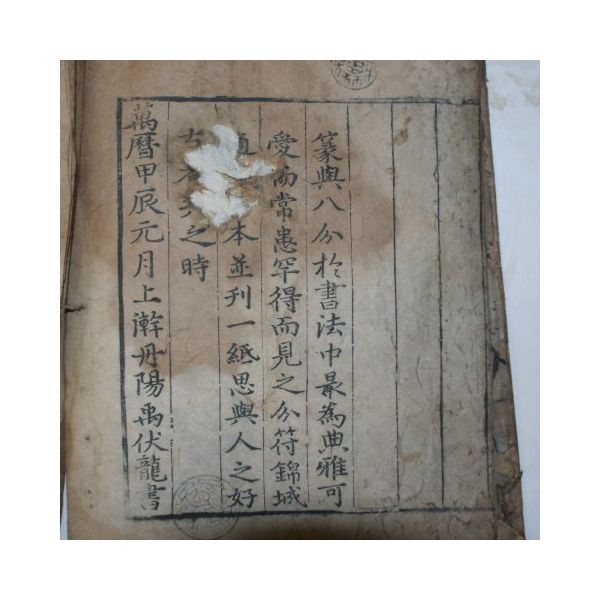 篆與八分於書法中最爲典雅可
愛而常患罕得而見之分符錦城
本並刊一紙思與人之好
古之時
萬曆甲辰元月上澣丹陽禹伏龍書